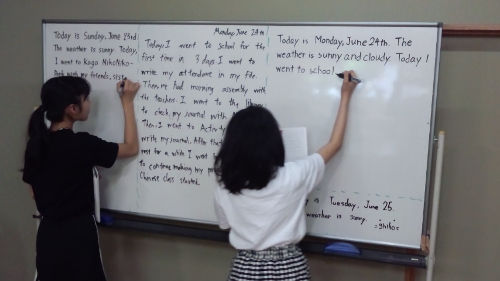 Today is Sunday, June 23rd.
The weather is sunny. Today,
I went to Koga NikoNiko-
Park with my friends, siste
Monday, June 24th
Today, I went to school for the
first time in 3 days. I went to
write my attendant in my file.
Then, we had morning assembly with
the teachers. I went to the
to check my journal with
Then, I went to Activ
write my journal. After that
rest for a while I went
to continue making my
Chinese class started.
Today is Monday, June 24th. The
weather is sunny and cloudy. Today I
went to school
is Tuesday, June 25.
weather is sunny.